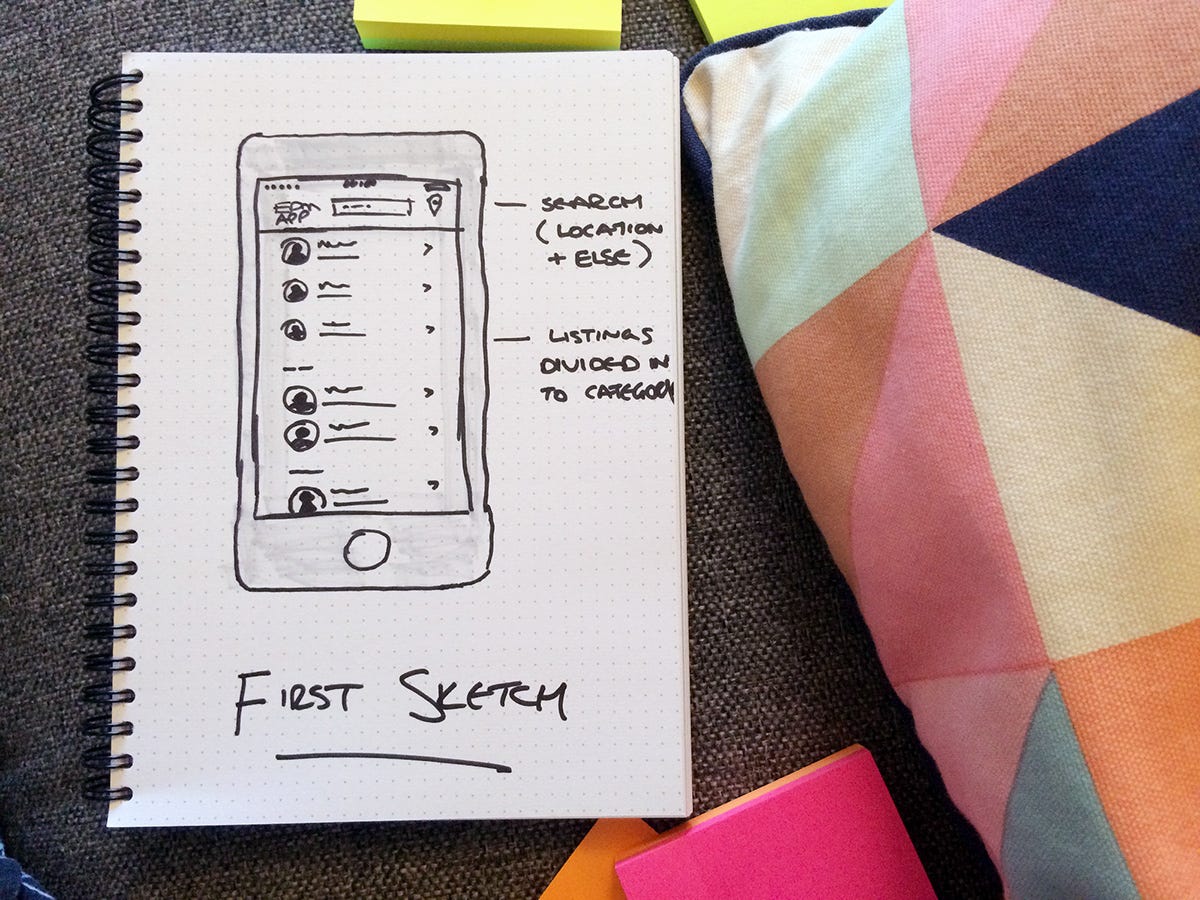 APP
SEARCH
(LOCATION
+ ELSE)
LISTINGS
DIVIDED IN
TO CATEGORY
FIRST SKETCH